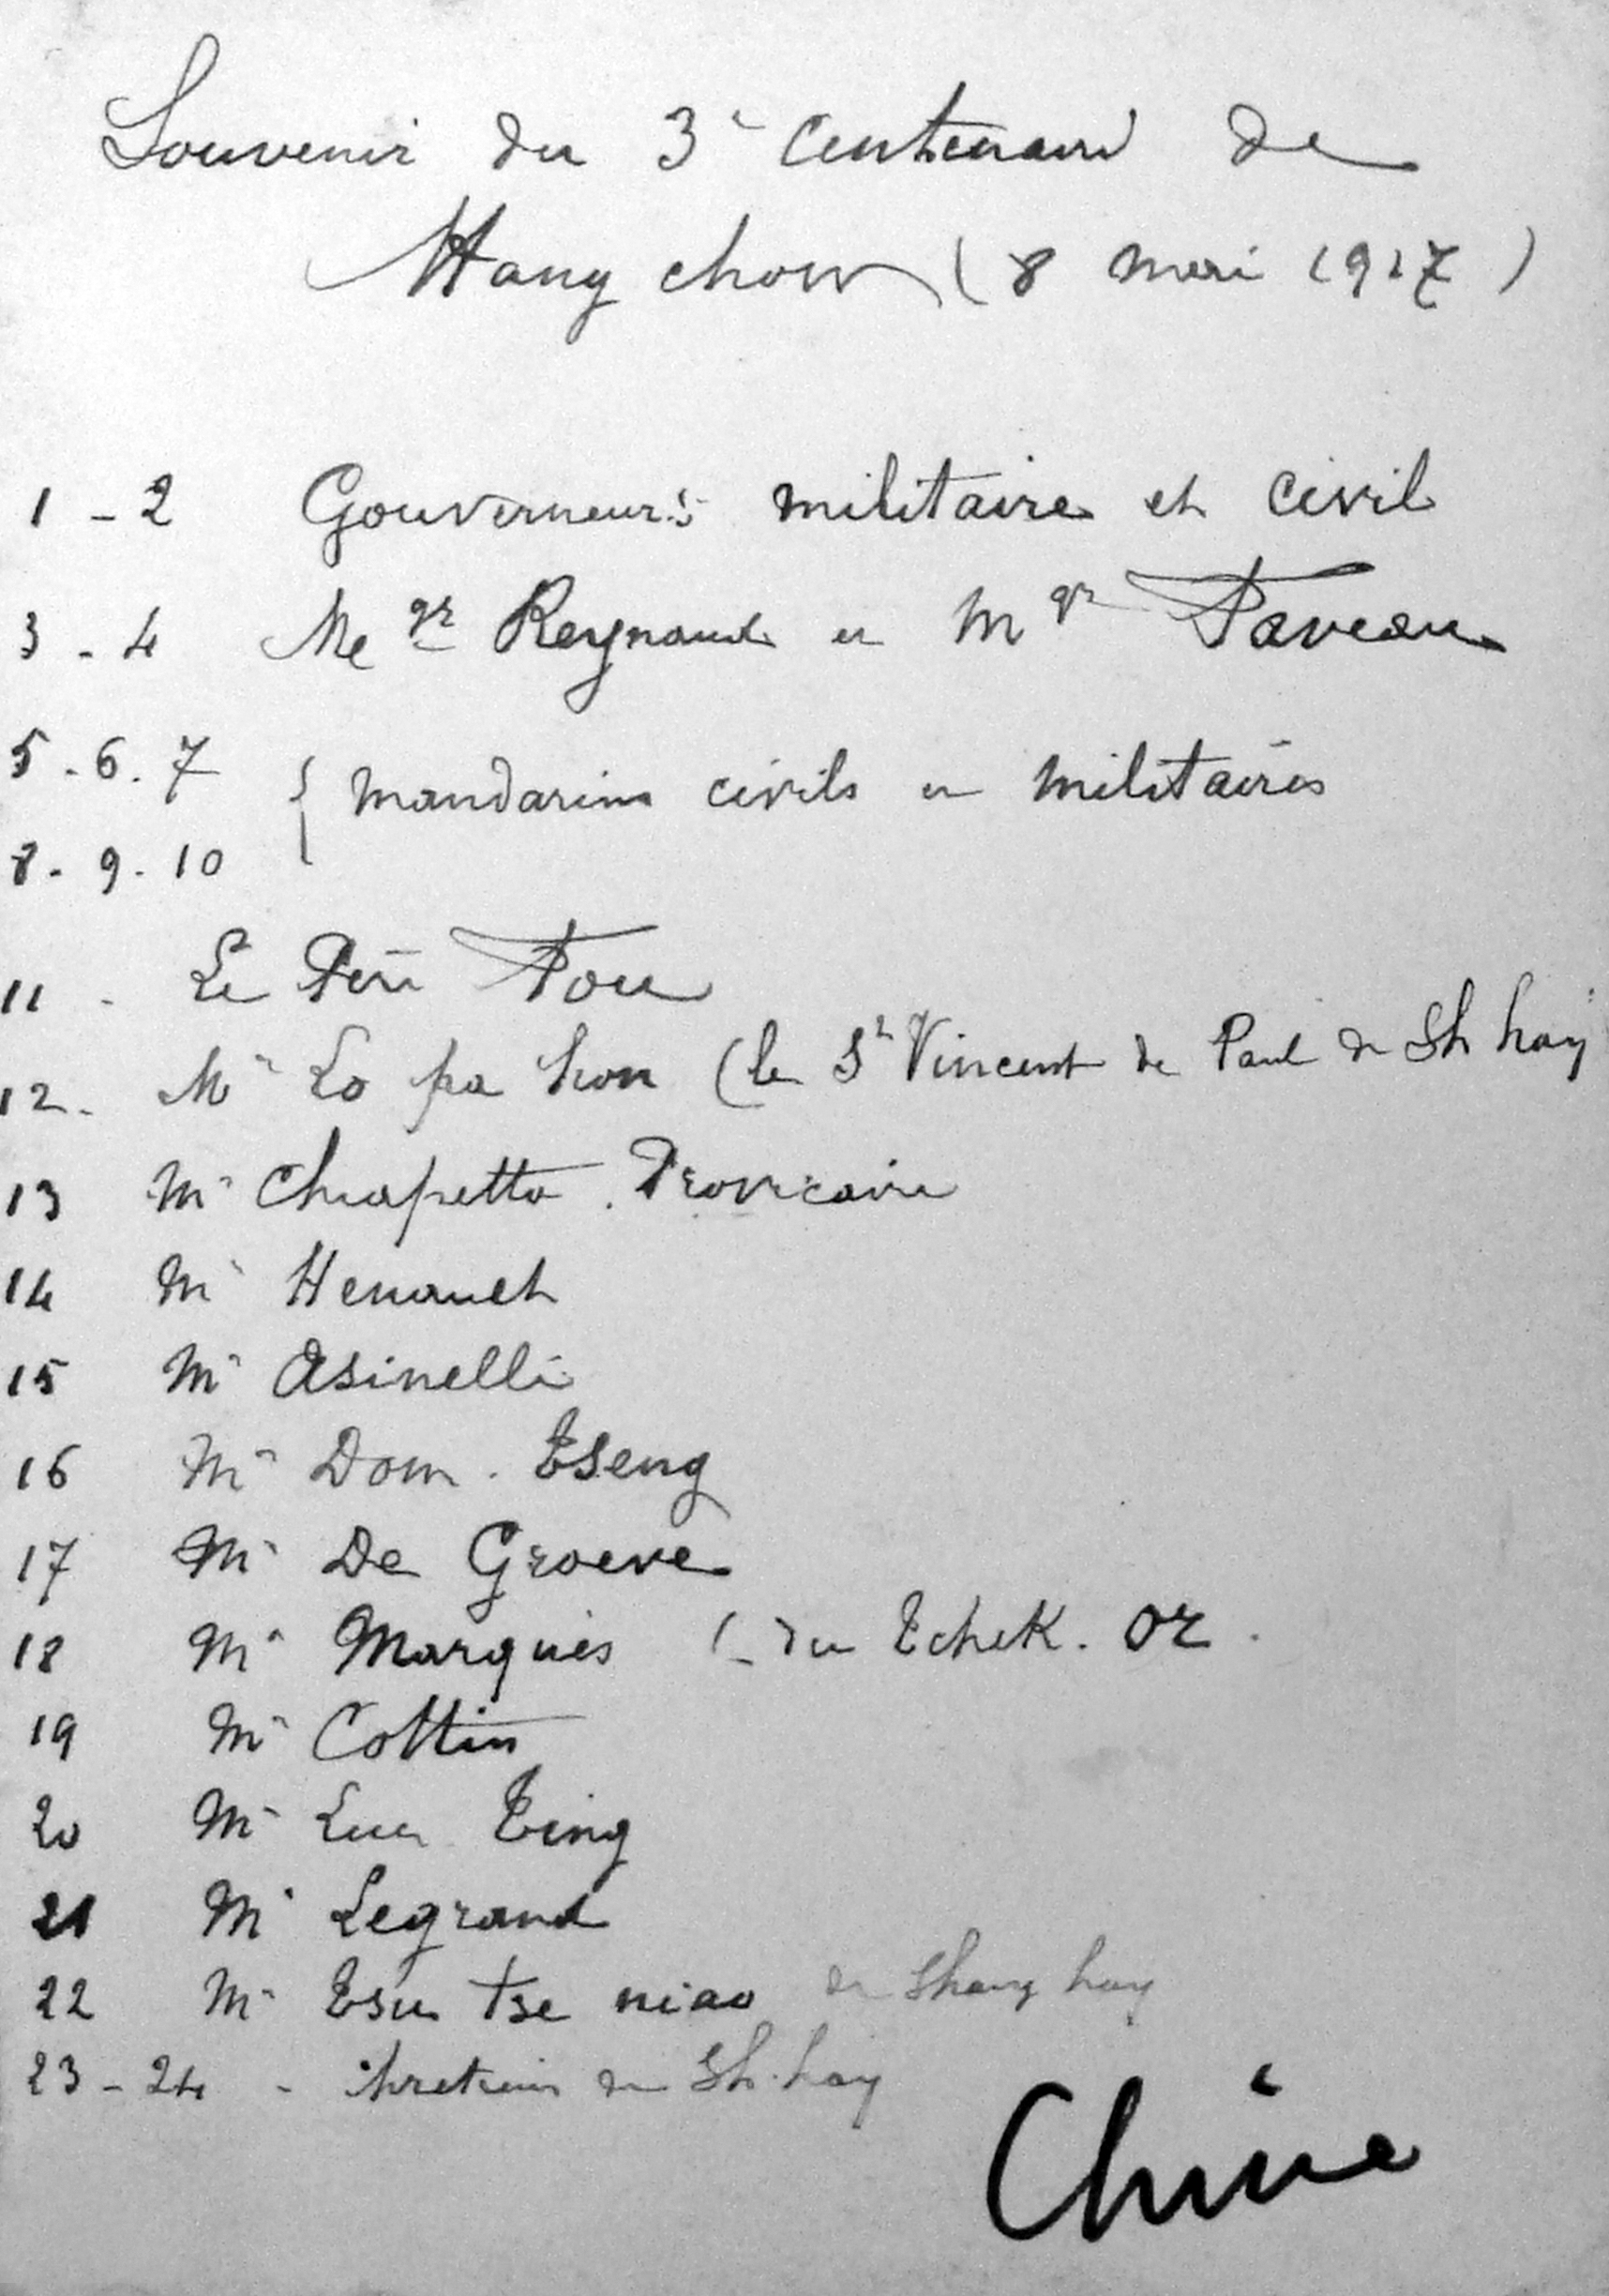 Souvenir du 3e Centenaire de
Hang chow (8 mai 1917)
1 - 2 Gouverneurs militaire et civil
3 - 4 Mgr Reynaud et Mgr Faveau
5 . 6 . 7
{ mandarins civils et militaires
8 . 9 . 10
11 - Le Père Fou
12 - Mr Lo pa hon (le St Vincent de Paul de Sh hay
13 Mr Chiapetto . Provicaire
14 Mr Henault
15 Mr Asinelli
16 Mr Dom . Tseng
17 Mr De Groeve
18 Mr Marquès ( - du Tchek . or .
19 Mr Cottin
20 Mr Luc Ting
21 Mr Legrand
22 Mr Tsu tse niao de Shang hay
23 - 24 - chretiens de Sh . hay
Chine